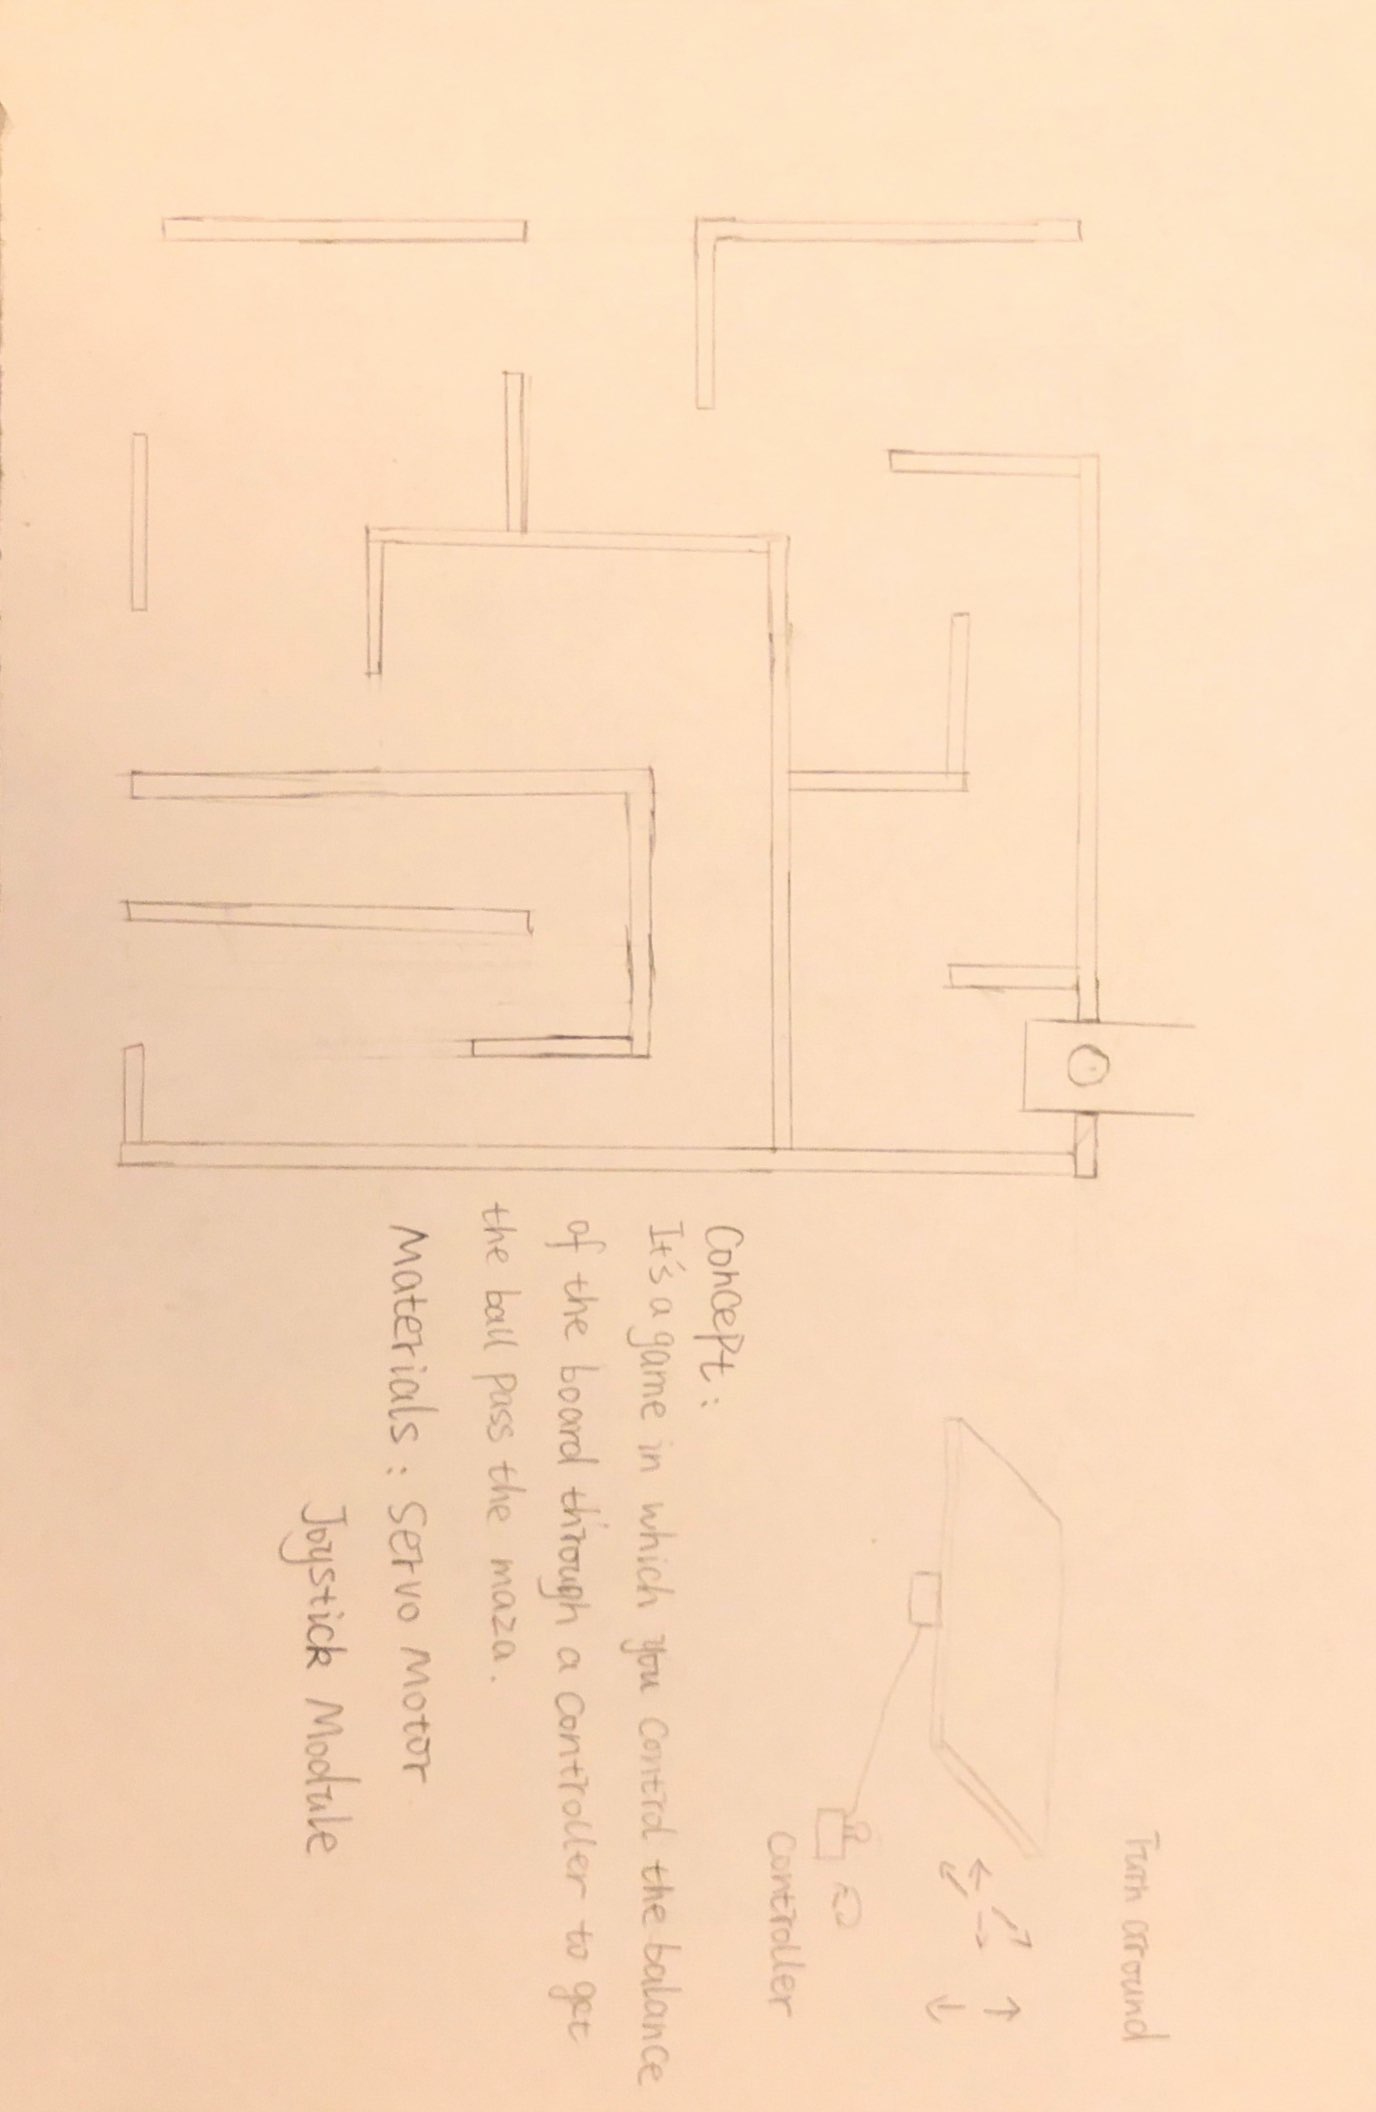 Turn around
Controller
Concept:
It's a game in which you control the balance
of the board through a controller to get
the ball pass the maza.
Materials: Servo Motor
Joystick Module